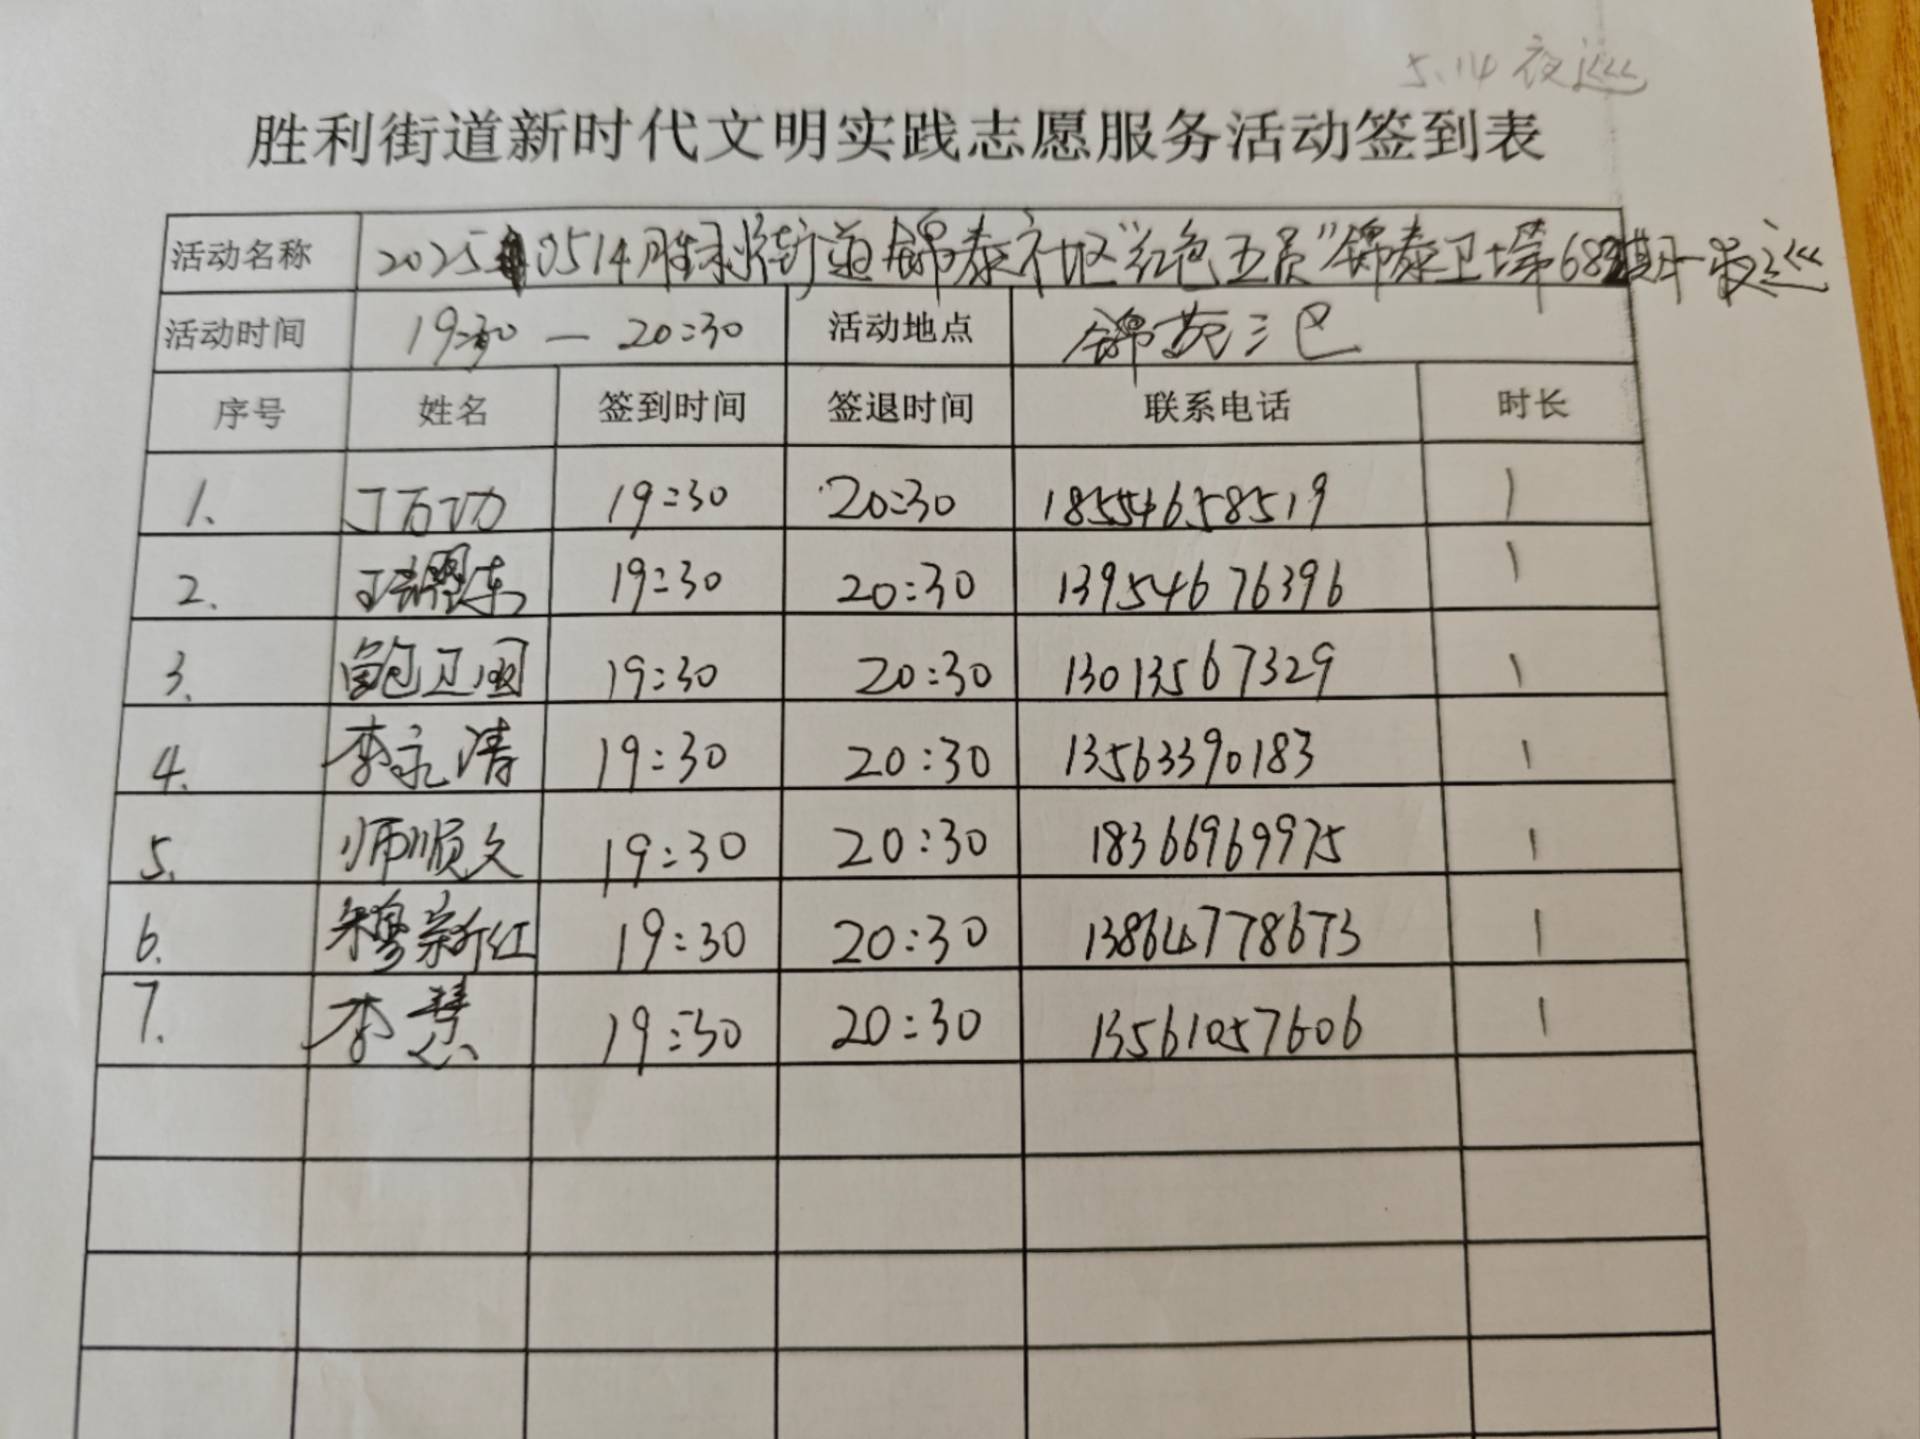 5.14夜巡
胜利街道新时代文明实践志愿服务活动签到表
活动名称 20250514胜利街道锦泰社区"红色五员"锦泰卫士第68期一夜巡
活动时间 19:30 — 20:30 活动地点 锦苑三区
序号 姓名 签到时间 签退时间 联系电话 时长
1. 丁万功 19:30 20:30 18554658519 1
2. 王耀东 19:30 20:30 13954676396 1
3. 鲍卫国 19:30 20:30 13013567329 1
4. 李永清 19:30 20:30 13563390183 1
5. 师顺文 19:30 20:30 18366969975 1
6. 穆新红 19:30 20:30 13864778673 1
7. 李慧 19:30 20:30 13561057606 1